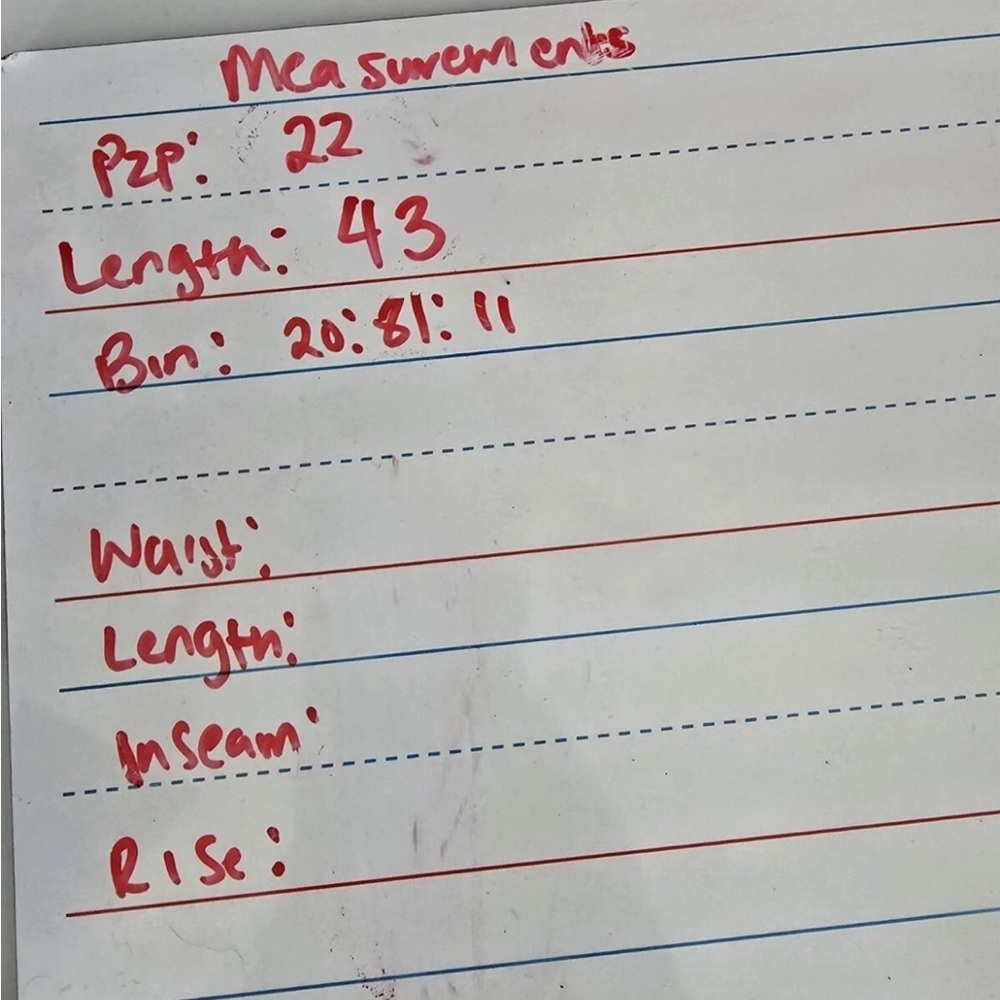 Measurements
P2P: 22
Length: 43
Bin: 20:81:11
Waist:
Length:
Inseam:
Rise: